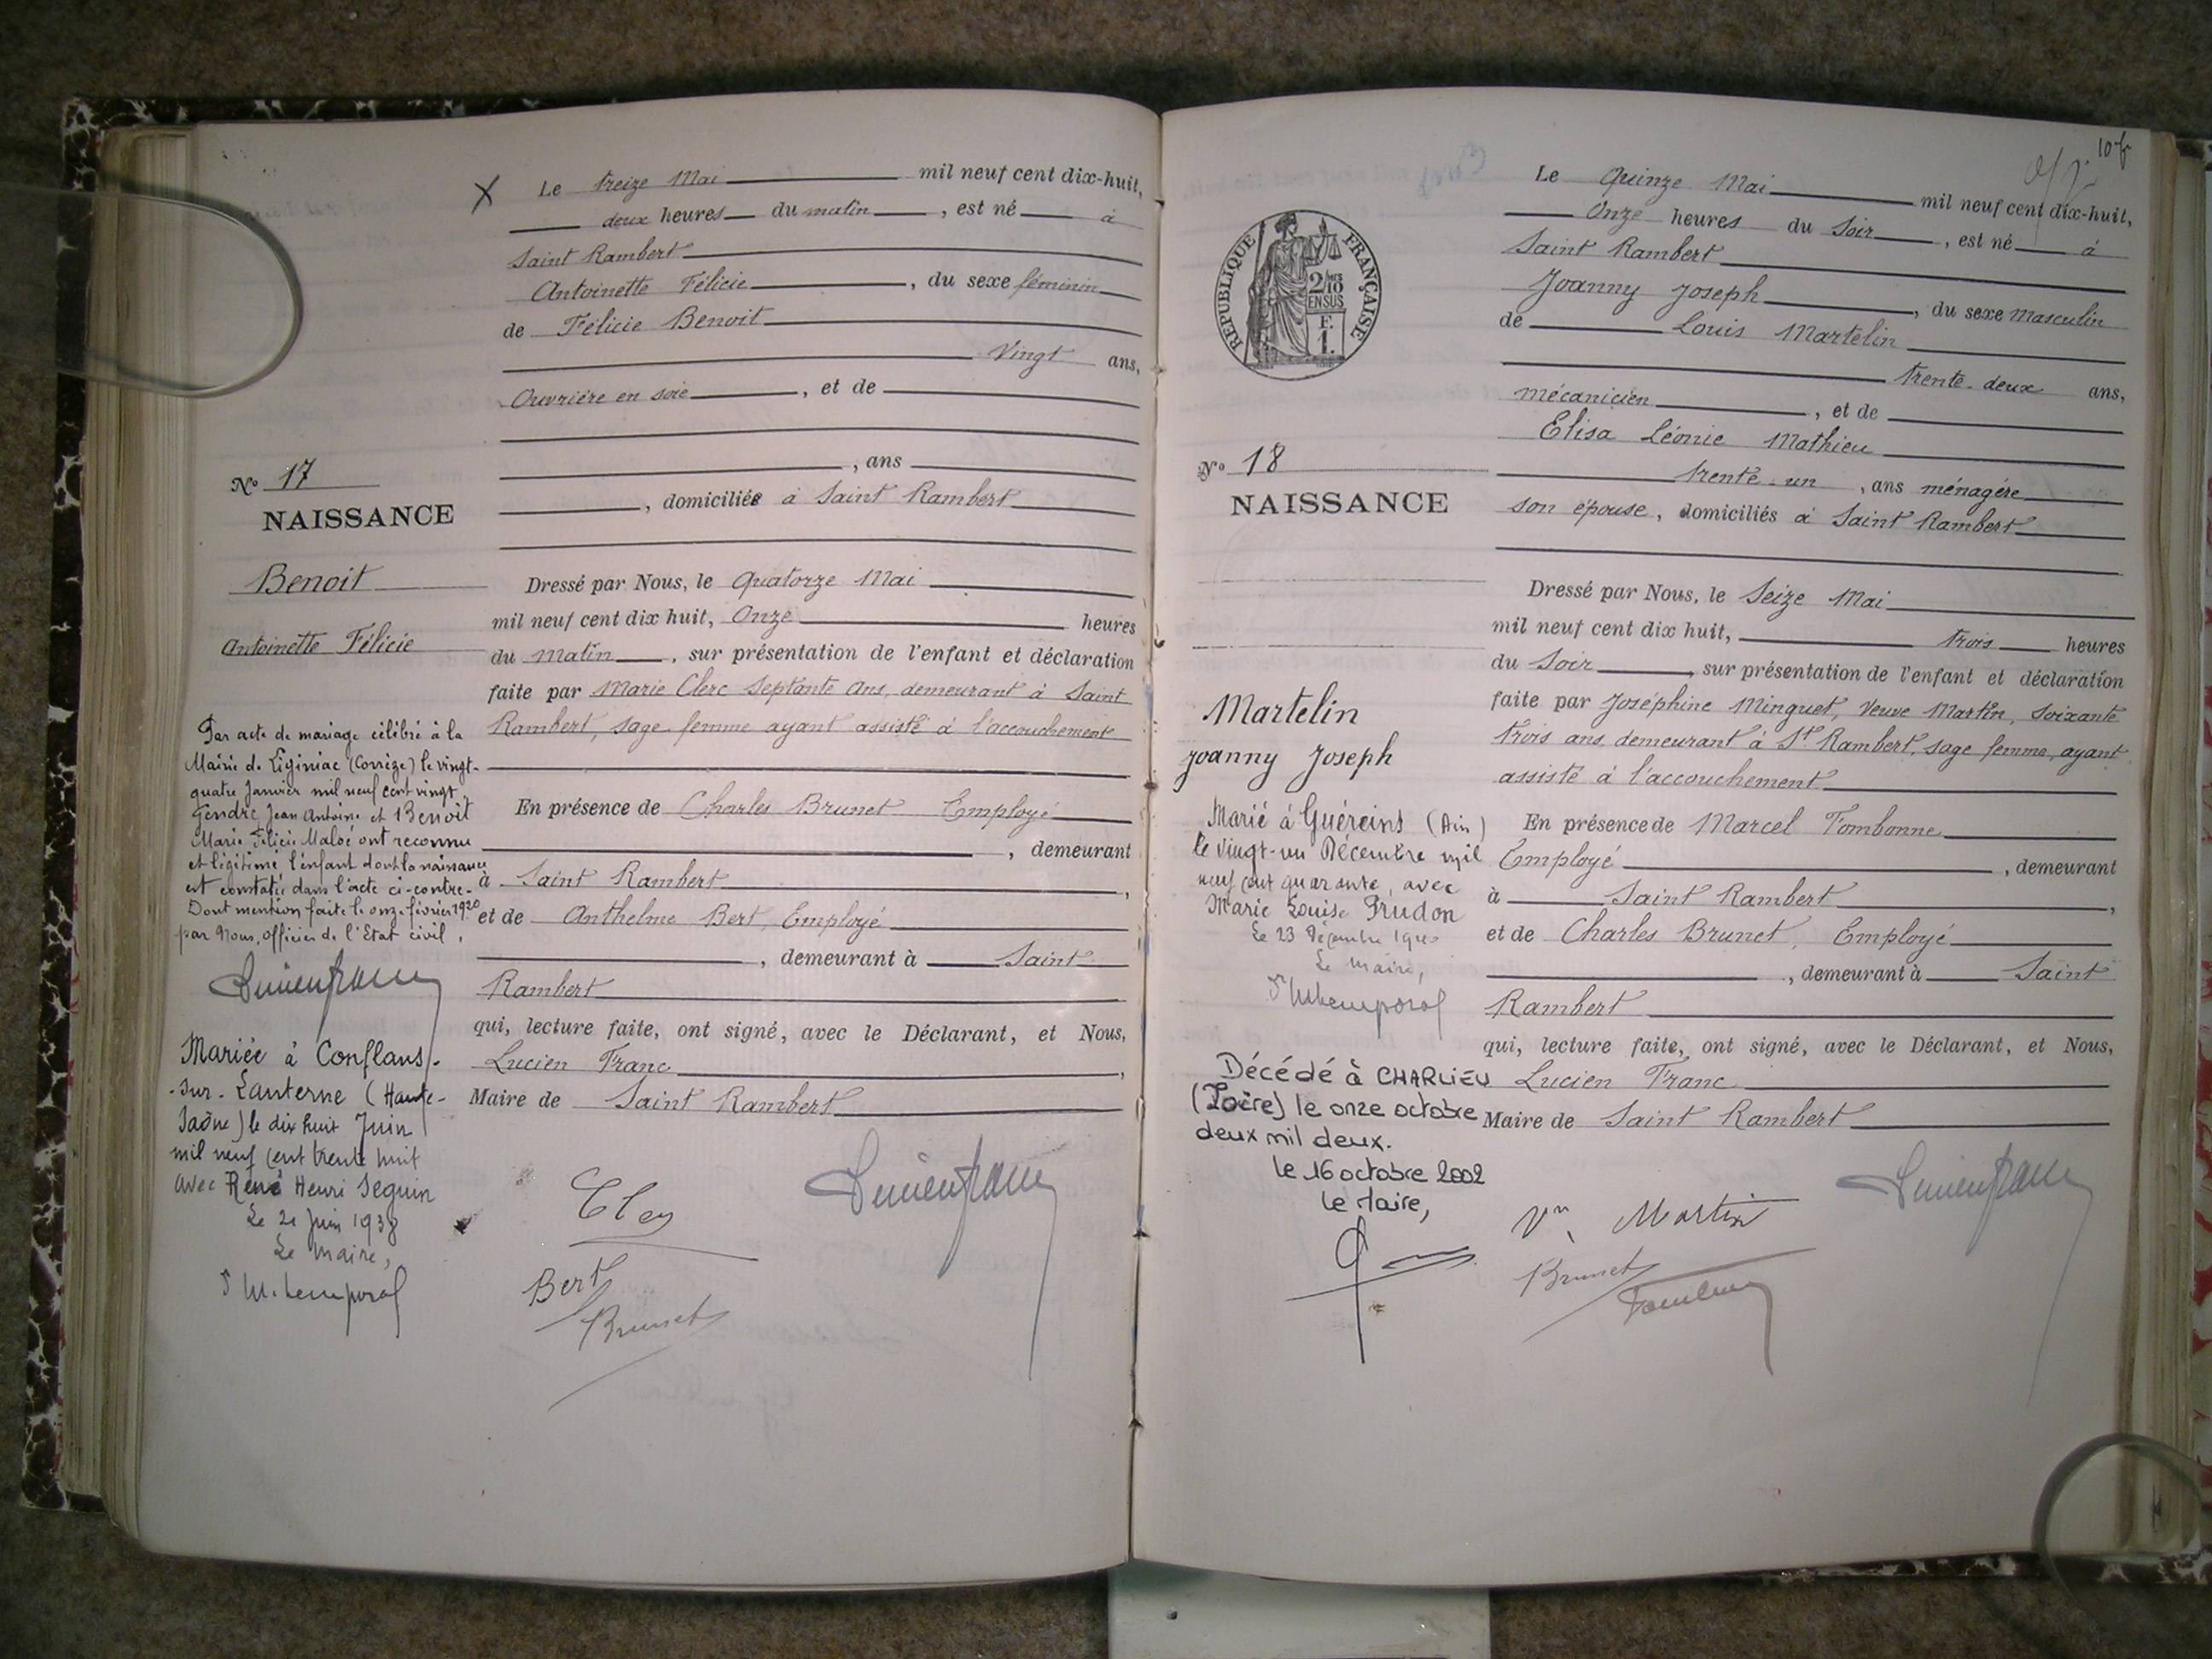 X
Le treize Mai mil neuf cent dix-huit,
deux heures du matin, est né à
Saint Rambert
Antoinette Félicie, du sexe féminin
de Félicie Benoit
Vingt ans,
Ouvrière en soie, et de
, ans
, domiciliée à Saint Rambert
No 17
NAISSANCE
Benoit
Antoinette Félicie
Dressé par Nous, le quatorze Mai
mil neuf cent dix huit, Onze heures
du Matin, sur présentation de l'enfant et déclaration
faite par Marie Clerc Septante ans, demeurant à Saint
Rambert, sage-femme ayant assisté à l'accouchement
En présence de Charles Brunet Employé
, demeurant
à Saint Rambert,
et de Anthelme Bert, Employé
, demeurant à Saint
Rambert
qui, lecture faite, ont signé, avec le Déclarant, et Nous,
Lucien Franc,
Maire de Saint Rambert
Par acte de mariage célébré à la
Mairie de Liginiac (Corrèze) le vingt-
quatre Janvier mil neuf cent vingt
Gendre Jean Antoine et Benoit
Marie Félicie ont reconnu
et légitimé l'enfant dont la naissance
est constatée dans l'acte ci-contre.
Dont mention faite le onze février 1920
par Nous, officier de l'Etat civil.
Lucien Franc
Mariée à Conflans-
-sur-Lanterne (Haute-
Saône) le dix huit Juin
mil neuf cent trente huit
avec René Henri Seguin
Le 21 Juin 1938
Le Maire,
Bert
Brunet
Lucien Franc
10 f
REPUBLIQUE FRANÇAISE
2/10
EN SUS
F.
1.
Le Quinze Mai mil neuf cent dix-huit,
Onze heures du Soir, est né à
Saint Rambert
Joanny Joseph, du sexe Masculin
de Louis Martelin
trente-deux ans,
mécanicien, et de
Elisa Léonie Mathieu
trente-un, ans ménagère
son épouse, domiciliés à Saint Rambert
No 18
NAISSANCE
Martelin
Joanny Joseph
Dressé par Nous, le Seize Mai
mil neuf cent dix huit, trois heures
du Soir, sur présentation de l'enfant et déclaration
faite par Joséphine Minguet, Veuve Martin, Soixante
trois ans, demeurant à St Rambert, sage femme, ayant
assisté à l'accouchement
En présence de Marcel Tombonne
Employé, demeurant
à Saint Rambert,
et de Charles Brunet, Employé
, demeurant à Saint
Rambert
qui, lecture faite, ont signé, avec le Déclarant, et Nous,
Lucien Franc
Maire de Saint Rambert
Marié à Guéreins (Ain)
le vingt-un Décembre mil
neuf cent quarante, avec
Marie Louise Prudon
Le 23 Décembre 1940
Le Maire,
Décédé à CHARLIEU
(Loire) le onze octobre
deux mil deux.
le 16 octobre 2002
Le Maire,
Vve Martin
Brunet
Lucien Franc